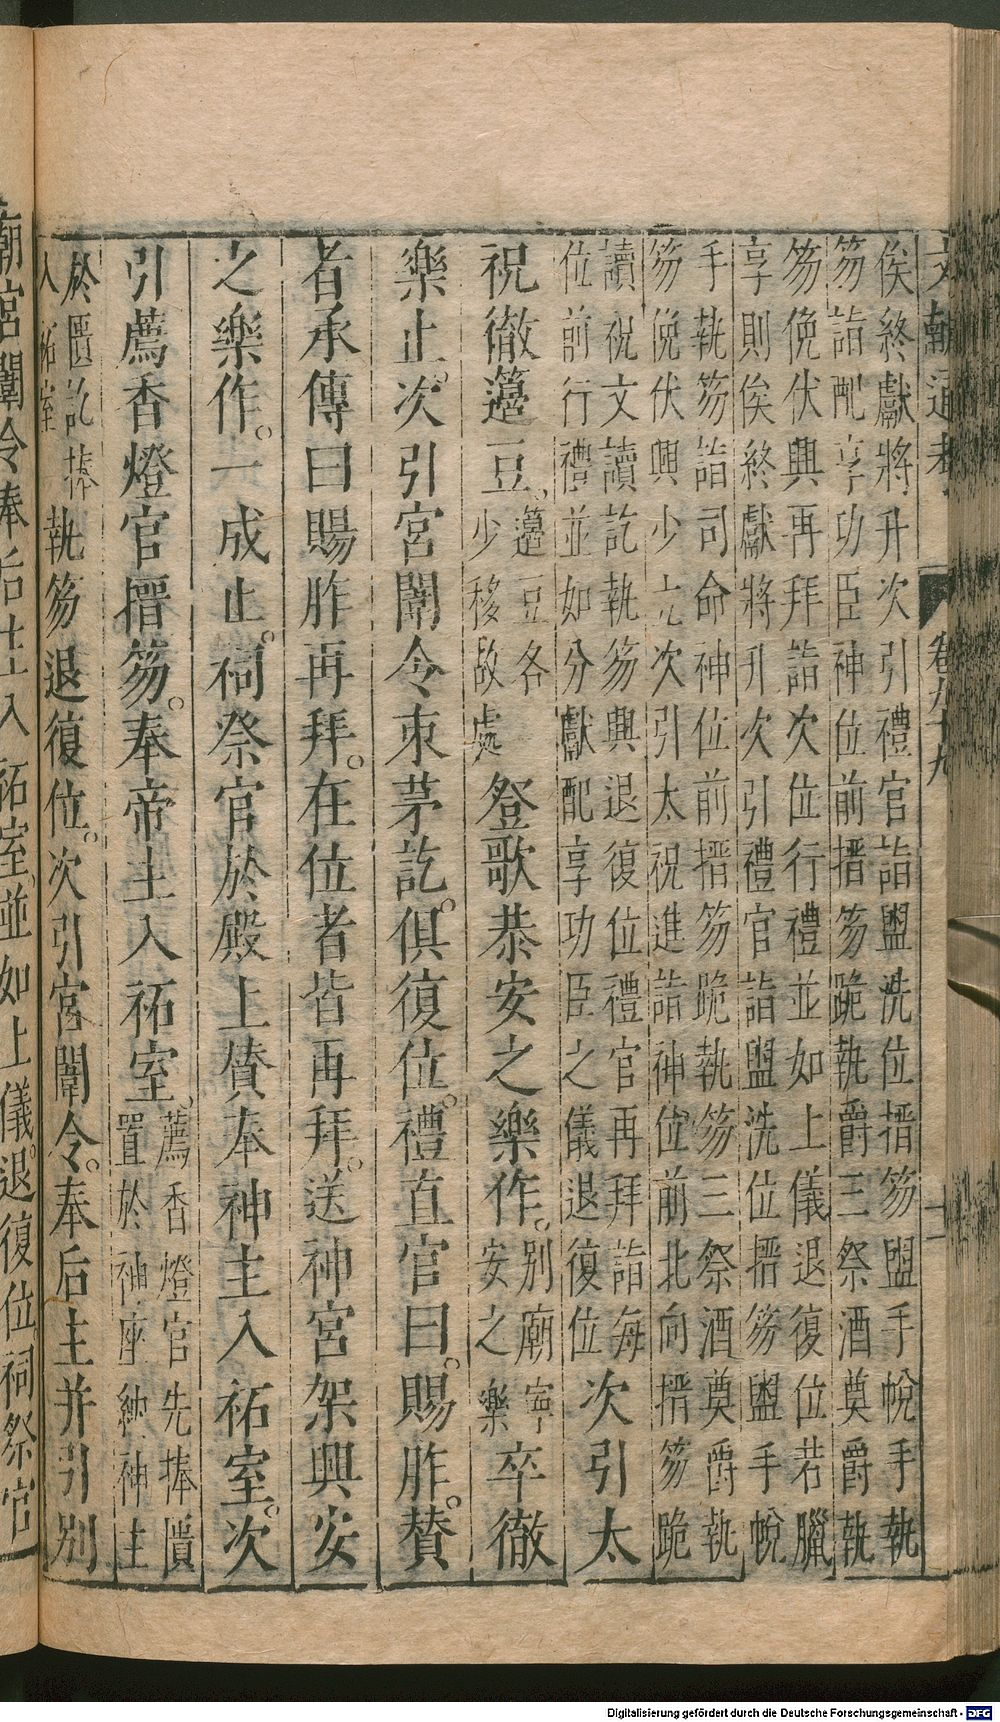 文獻通考 卷九十九 十一
俟終獻將升次引禮官詣盥洗位搢笏盥手帨手執
笏詣配享功臣神位前搢笏跪執爵三祭酒奠爵執
笏俛伏興再拜詣次位行禮並如上儀退復位若臘
享則俟終獻將升次引禮官詣盥洗位搢笏盥手帨
手執笏詣司命神位前搢笏跪執笏三祭酒奠爵執
笏俛伏興少立次引太祝進詣神位前北向搢笏跪
讀祝文讀訖執笏興退復位禮官再拜詣每
位前行禮並如分獻配享功臣之儀退復位次引太
祝徹籩豆。籩豆各少移故處登歌恭安之樂作。別廟寧安之樂卒徹
樂止。次引宮闈令束茅訖。俱復位。禮直官曰。賜胙。賛
者承傳曰賜胙再拜。在位者皆再拜。送神宮架興安
之樂作。一成止。祠祭官於殿上賛奉神主入祏室。次
引薦香燈官搢笏。奉帝主入祏室。薦香燈官先捧匱置於神座納神主
於匱訖捧入祏室執笏退復位。次引宮闈令。奉后主并引別
廟宮闈令奉后主入祏室並如上儀。退復位。祠祭官
Digitalisierung gefördert durch die Deutsche Forschungsgemeinschaft - DFG